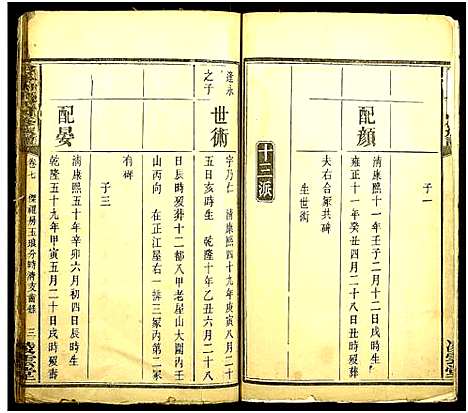 子一
配顔
清康熙十一年壬子二月二十日辰時生
雍正十一年癸丑四月二十一日戌時歿葬
夫右合冢共碑
生世術
十三派
逢永
之子
世術
字乃仁 清康熙四十九年庚寅八月二十
五日亥時生 乾隆十年乙丑六月二十八
日辰時歿葬十二都八甲老屋山大圍内壬
山丙向 在正江屋右一排三冢内第二冢
有碑
子三
配晏
清康熙五十年辛卯六月初四日辰時生
乾隆五十九年甲寅五月二十日戌時歿葬
卷七
傑禮房玉琅分時濟支齒錄 三